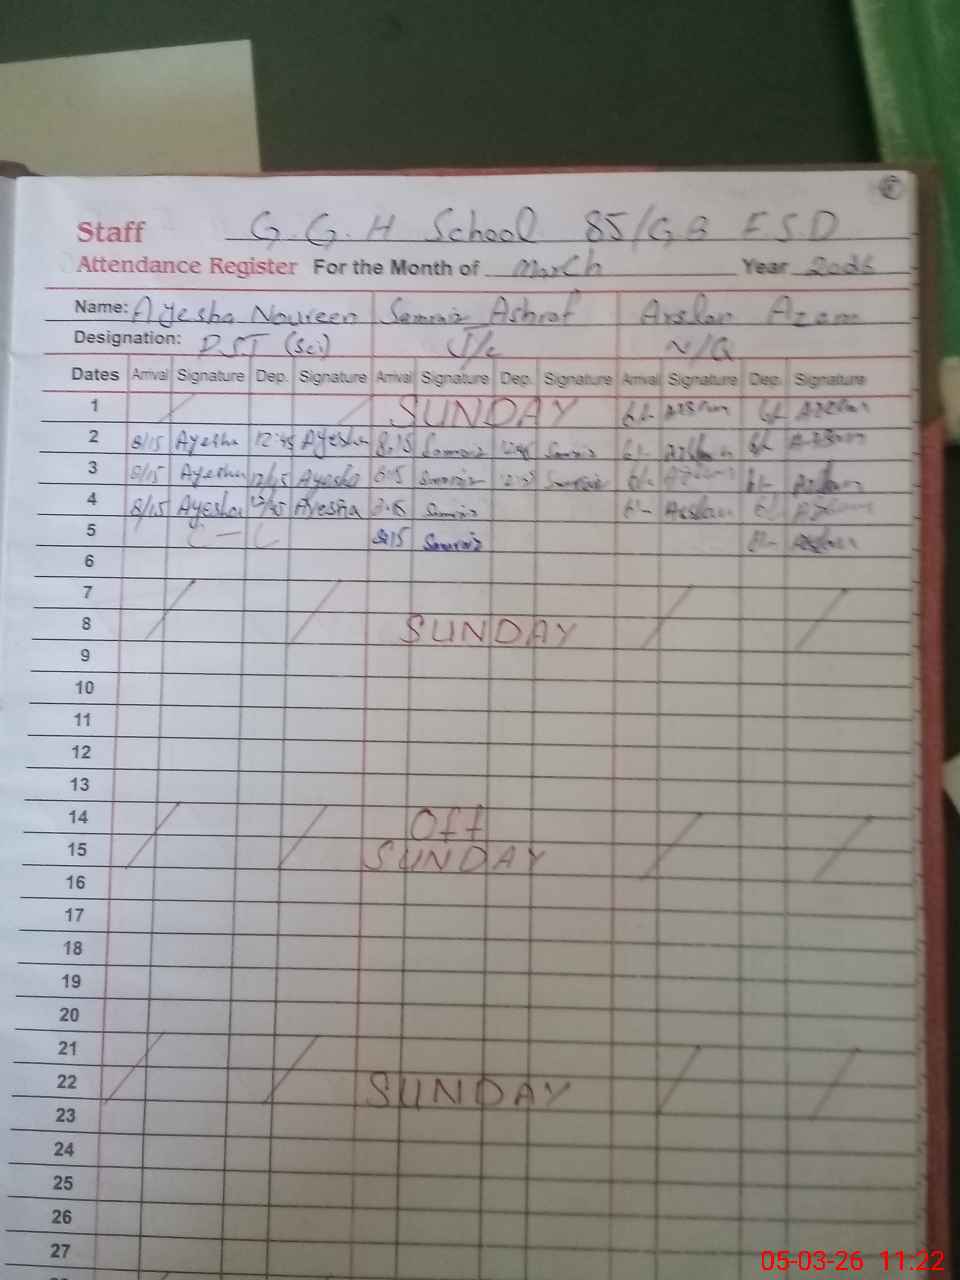 Staff G.G.H School 85/GB F.S.D
Attendance Register For the Month of March Year 2026
Name: Ayesha Noureen Samraiz Ashraf Arslan Azam
Designation: D.S.T (Sci) J/c N/Q
Dates Arrival Signature Dep. Signature Arrival Signature Dep. Signature Arrival Signature Dep. Signature
1 SUNDAY 6/- 6/-
2 8/15 Ayesha 12:45 Ayesha 8:15 Samraiz 12:45 Samraiz 6/- Arslan 6/-
3 8/15 Ayesha 12/45 Ayesha Samraiz Samraiz 6/- 6/- Arslan
4 8/15 Ayesha 12/45 Ayesha Samraiz 6/- Arslan 6/-
5 C - L 8:15 Samraiz 6/- Arslan
6
7
8 SUNDAY
9
10
11
12
13
14 Off
15 SUNDAY
16
17
18
19
20
21
22 SUNDAY
23
24
25
26
27
05-03-26 11:22